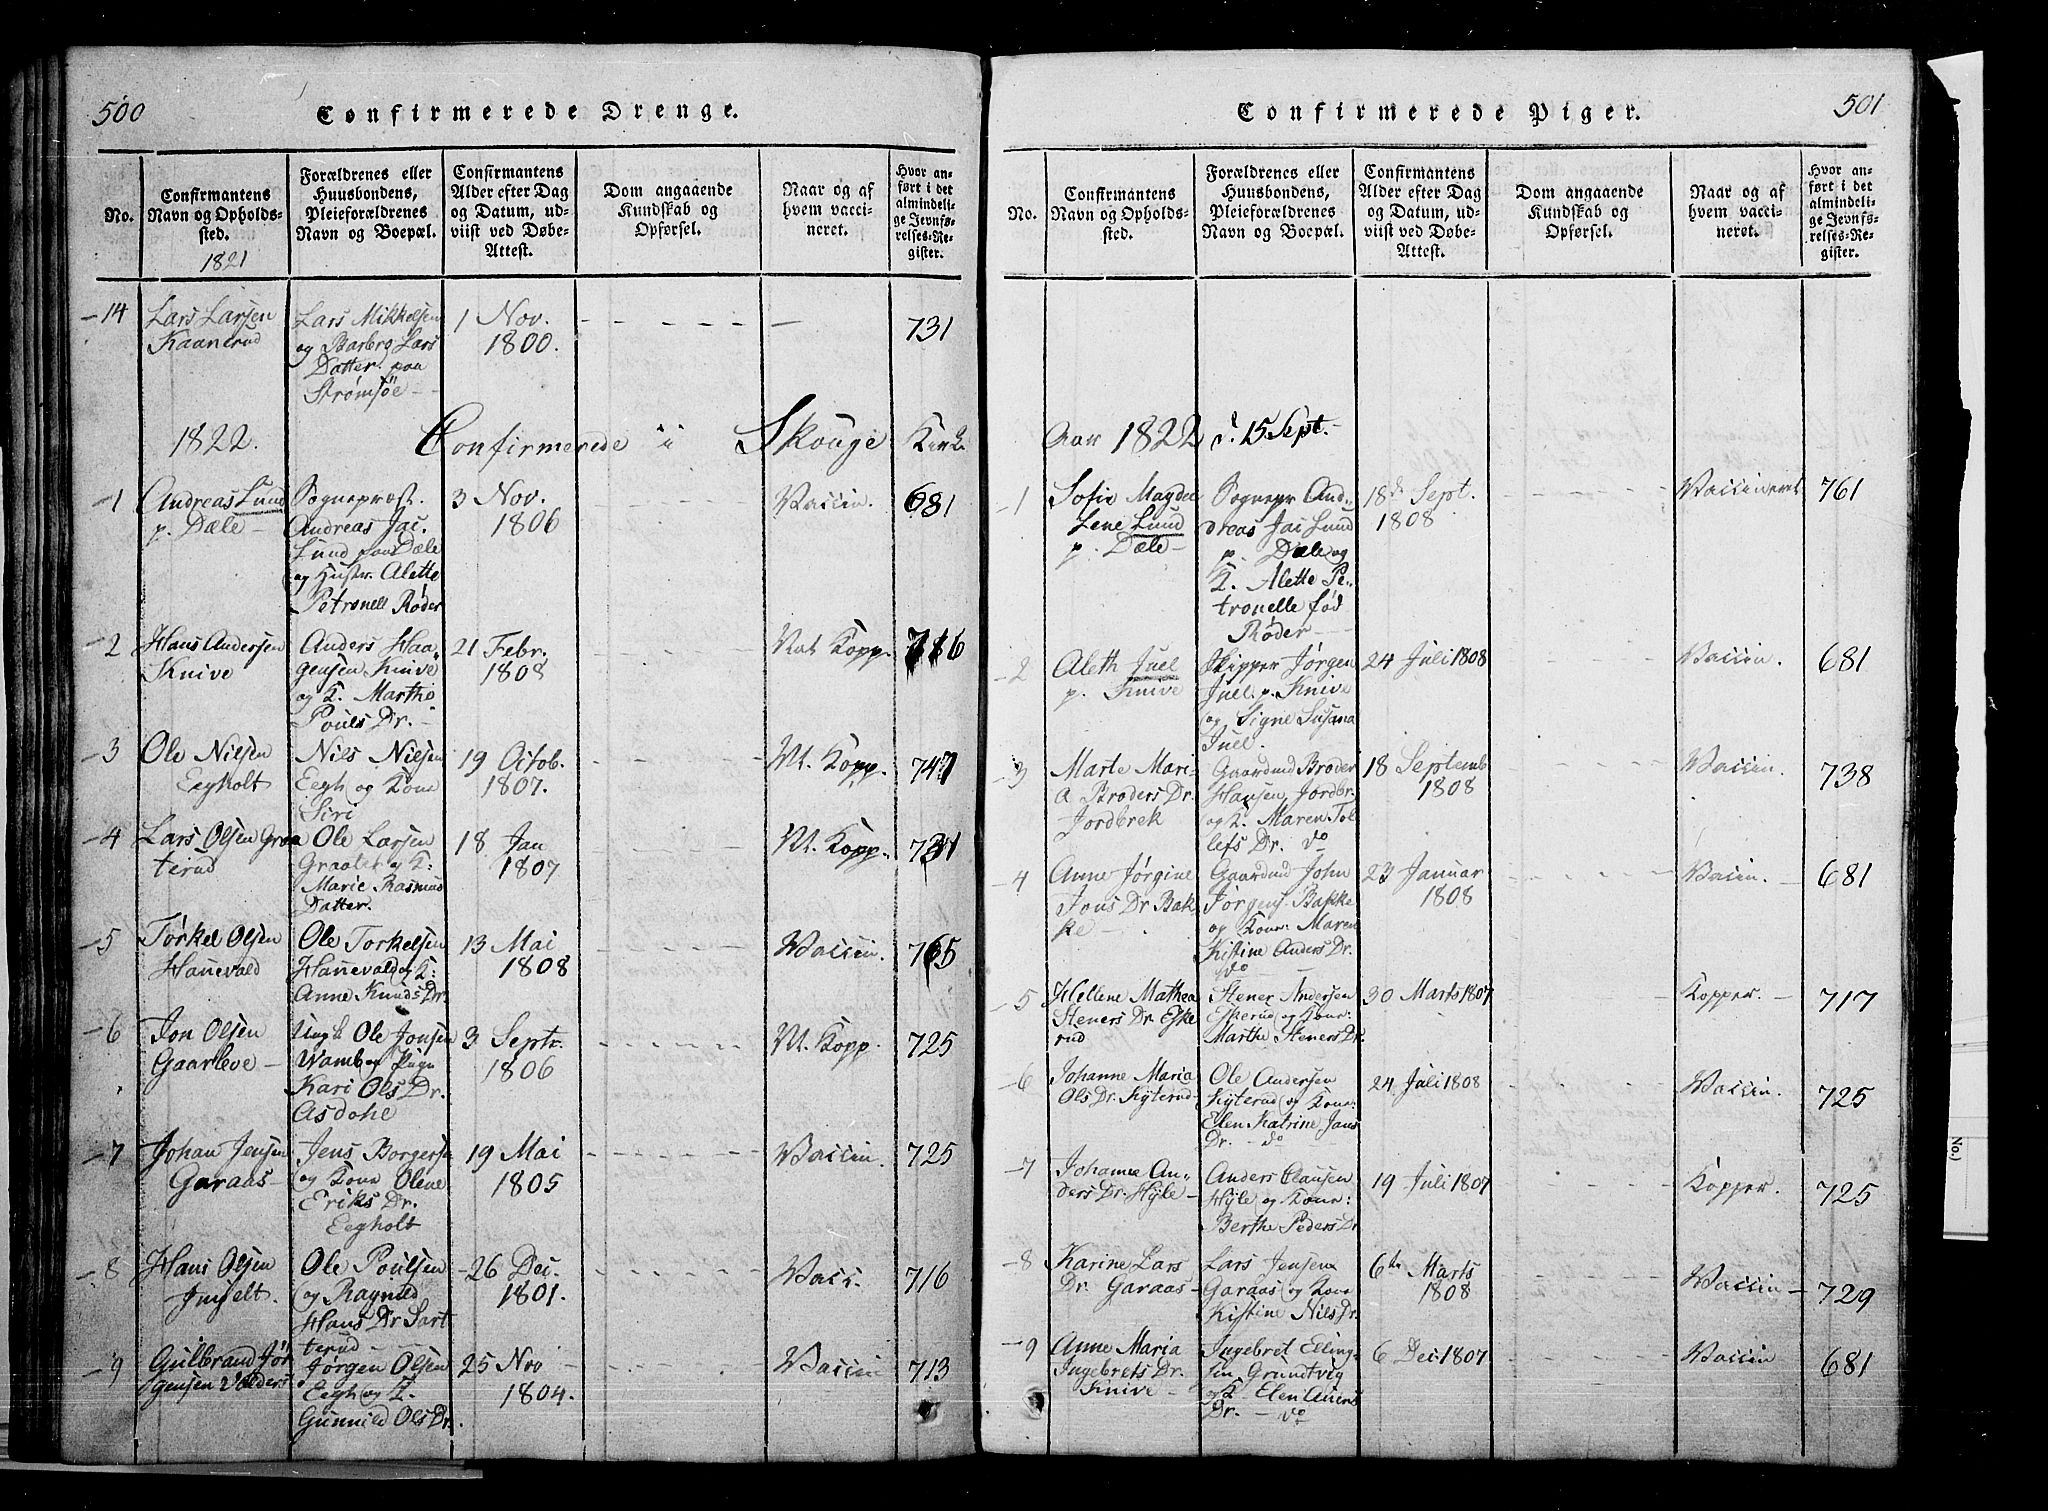 500
Confirmerede Drenge.
No.
Confirmantens
Navn og Opholds-
sted.
1821
Forældrenes eller
Huusbondens,
Pleieforældrenes
Navn og Boepæl.
Confirmantens
Alder efter Dag
og Datum, ud-
viist ved Døbe-
Attest.
Dom angaaende
Kundskab og
Opførsel.
Naar og af
hvem vacci-
neret.
Hvor an-
ført i det
almindeli-
ge Jevnfø-
relses-Re-
gister.
14
Lars Larsen
Kaanrud
Lars Mikkelsen
og Barbrg Lars
Datter. paa
Strømsøe
1 Nov.
1800.
731
1822. Confirmerede i Skouge Kirk.
1
Andreas Lund
p. Dæle
Sogneprest.
Andreas Jac.
Lund paa Dæle
og Hustr. Alette
Petronell Røder
3 Nov.
1806
Vaccin.
681
2
Hans Andersen
Knive
Anders Haa-
gensen Knive
og K. Marthe
Pouls Dr.
21 Febr.
1808
Nat Kopp.
716
3
Ole Nilsen
Eegholt
Nils Nilsen
Eegh og Kone
Siri
19 Octob.
1807.
Nt. Kopp.
747
4
Lars Olsen Graa
terud
Ole Larsen
Graater og K:
Marie Rasmus
Datter.
18 Jan
1807
Nt. Kopp.
731
5
Torkel Olsen
Hanevald
Ole Torkelsen
Hanevald og K:
Anne Knuds Dr.
13 Mai
1808
Vaccin.
765
6
Jon Olsen
Gaarleve
Ungk Ole Jonsen
Wamb og Pige
Kari Ols Dr.
Asdohe
3 Septr.
1806
Nt. Kopp.
725
7
Johan Jensen
Garaas
Jens Borgers
og Kone Olene
Eriks Dr.
Eegholt
19 Mai
1805
Vaccin.
725
8
Hans Olsen
Imselt.
Ole Poulsen
og Ragnild
Hans Dr Sart
terud
26 Dec.
1801.
Vacc.
716
9
Gulbrand Jør
gensen Valders
Jørgen Olsen
Eegh og K.
Gunnild Ols Dr.
25 Nov
1804.
Vaccin
713
501
Confirmerede Piger.
No.
Confirmantens
Navn og Opholds-
sted.
Forældrenes eller
Huusbondens,
Pleieforældrenes
Navn og Boepæl.
Confirmantens
Alder efter Dag
og Datum, ud-
viist ved Døbe-
Attest.
Dom angaaende
Kundskab og
Opførsel.
Naar og af
hvem vacci-
neret.
Hvor an-
ført i det
almindeli-
ge Jevnfø-
relses-Re-
gister.
Aar 1822 d. 15 Sept.
1
Sofie Magda
lene Lund
p. Dæle
Sognepr And-
dreas Jac Lund
p. Dæle og
K. Alette Pe-
tronelle fød
Røder
18de Sept.
1808
Vaccineret
761
2
Aleth Juel
p. Knive
Skipper Jørgen
Juel p. Knive
og Signe Susana
Juel.
24 Juli 1808
Vaccin.
681
3
Marte Mari-
a Broders Dr.
Jordbrek
Gaardmd Broder
Hansen Jordbr.
og K. Maren Tol
lefs Dr. do
18 Septemb
1808
Vaccin.
738
4
Anne Jørgine
Jons Dr Bak
ke
Gaardmd John
Jørgens Bakke
og Kone: Maren
Kistine Anders Dr.
do
23 Januar
1808
Vaccin.
681
5
Hellene Mathea
Steners Dr. Eske
rud
Stener Andersen
Eskerud og Kone:
Marthe Steners Dr.
30 Marts 1807
Kopper.
717
6
Johanne Maria
Ols Dr. Kyterud
Ole Andersen
Kyterud og Kone:
Elen Katrine Jans
Dr. do
24 Juli 1808
Vaccin.
725
7
Johanne An-
ders Dr. Hyle
Anders Clausen
Hyle og Kone:
Berthe Peders Dr
19 Juli 1807
Kopper.
725
8
Karine Lars
Dr. Garaas
Lars Jensen
Garaas og Kone
Kistine Nils Dr.
6te Marts
1808
Vaccin
729
9
Anne Maria
Ingebrets Dr.
Knive
Ingebret Elling-
sen Grundtvig
og K Elen
Dr. do
6 Dec. 1807
Vaccin
681
No.)